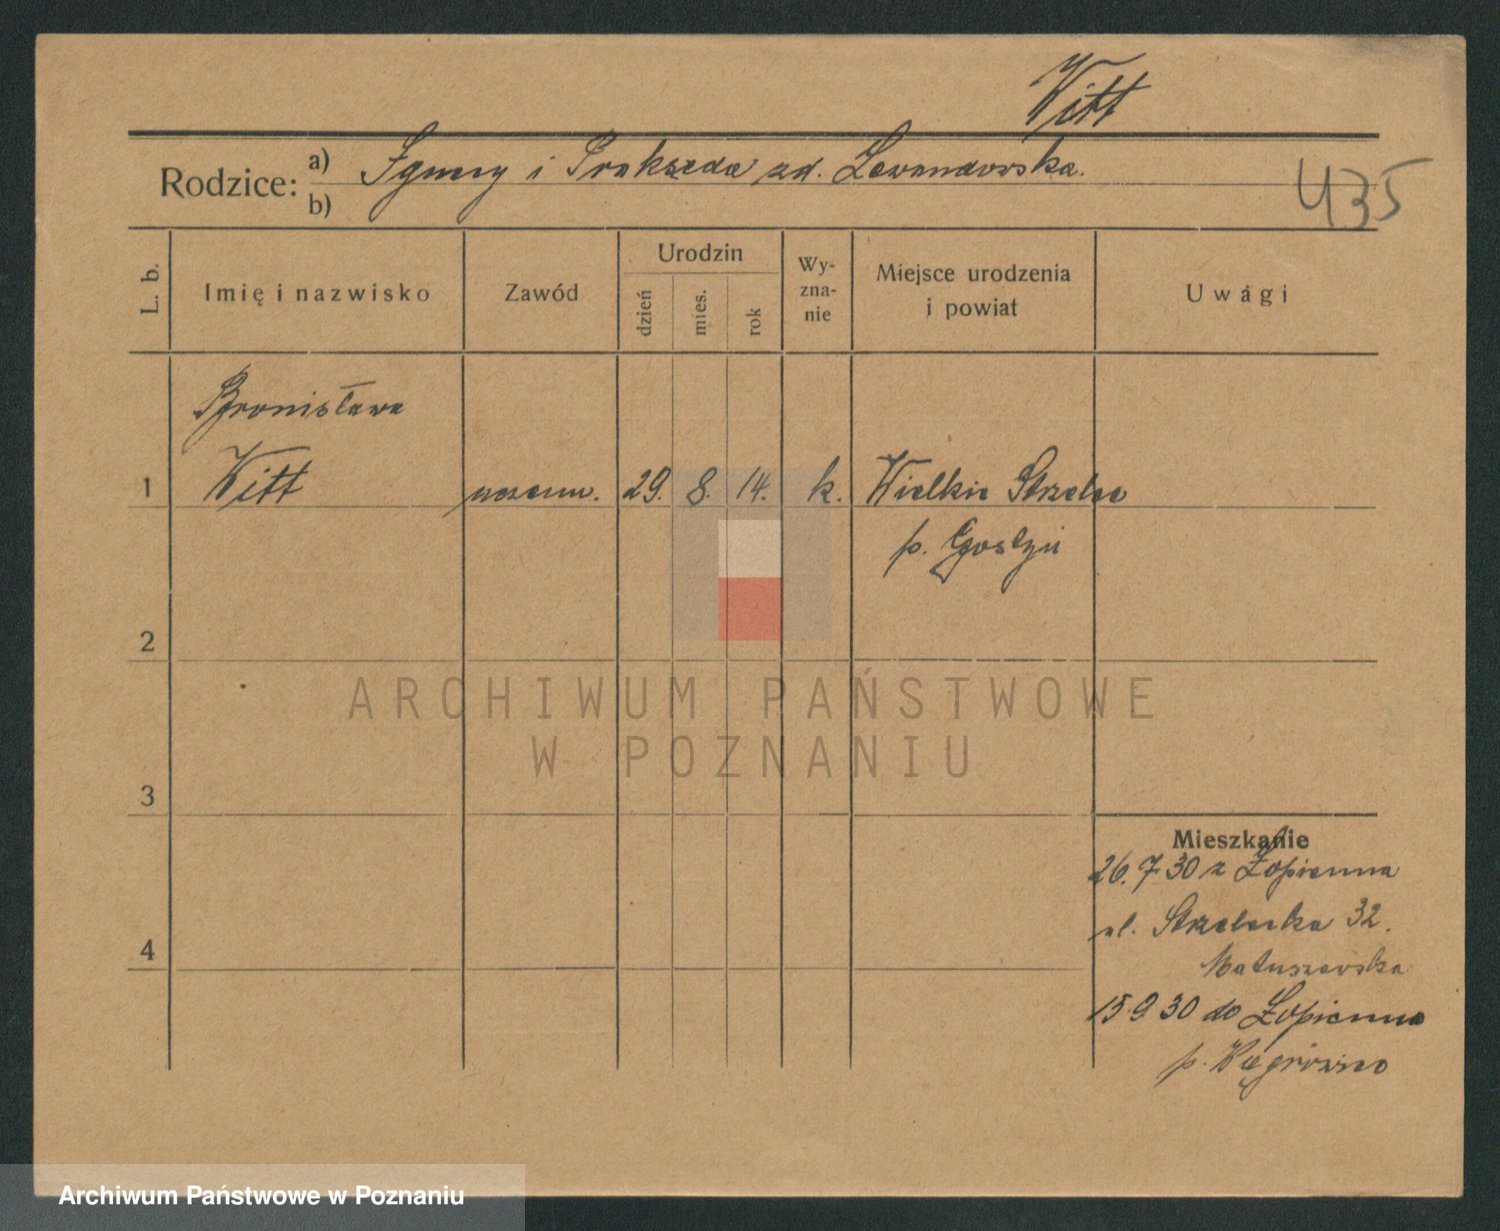 Witt
Rodzice: a) Ignacy i Prakseda zd. Lewandowska.
b)
435
L. b.
Imię i nazwisko
Zawód
Urodzin
dzień
mies.
rok
Wy-
zna-
nie
Miejsce urodzenia
i powiat
Uwagi
Bronisława
1 Witt uczenn. 29. 8. 14. k. Wielkie Strzelce
p. Gostyń
2
3
4
Mieszkanie
26.7.30 z Łopienna
ul. Strzelecka 32.
Matuszewska
15.9.30 do Łopienna
p. Wągrówiec
ARCHIWUM PAŃSTWOWE
W POZNANIU
Archiwum Państwowe w Poznaniu